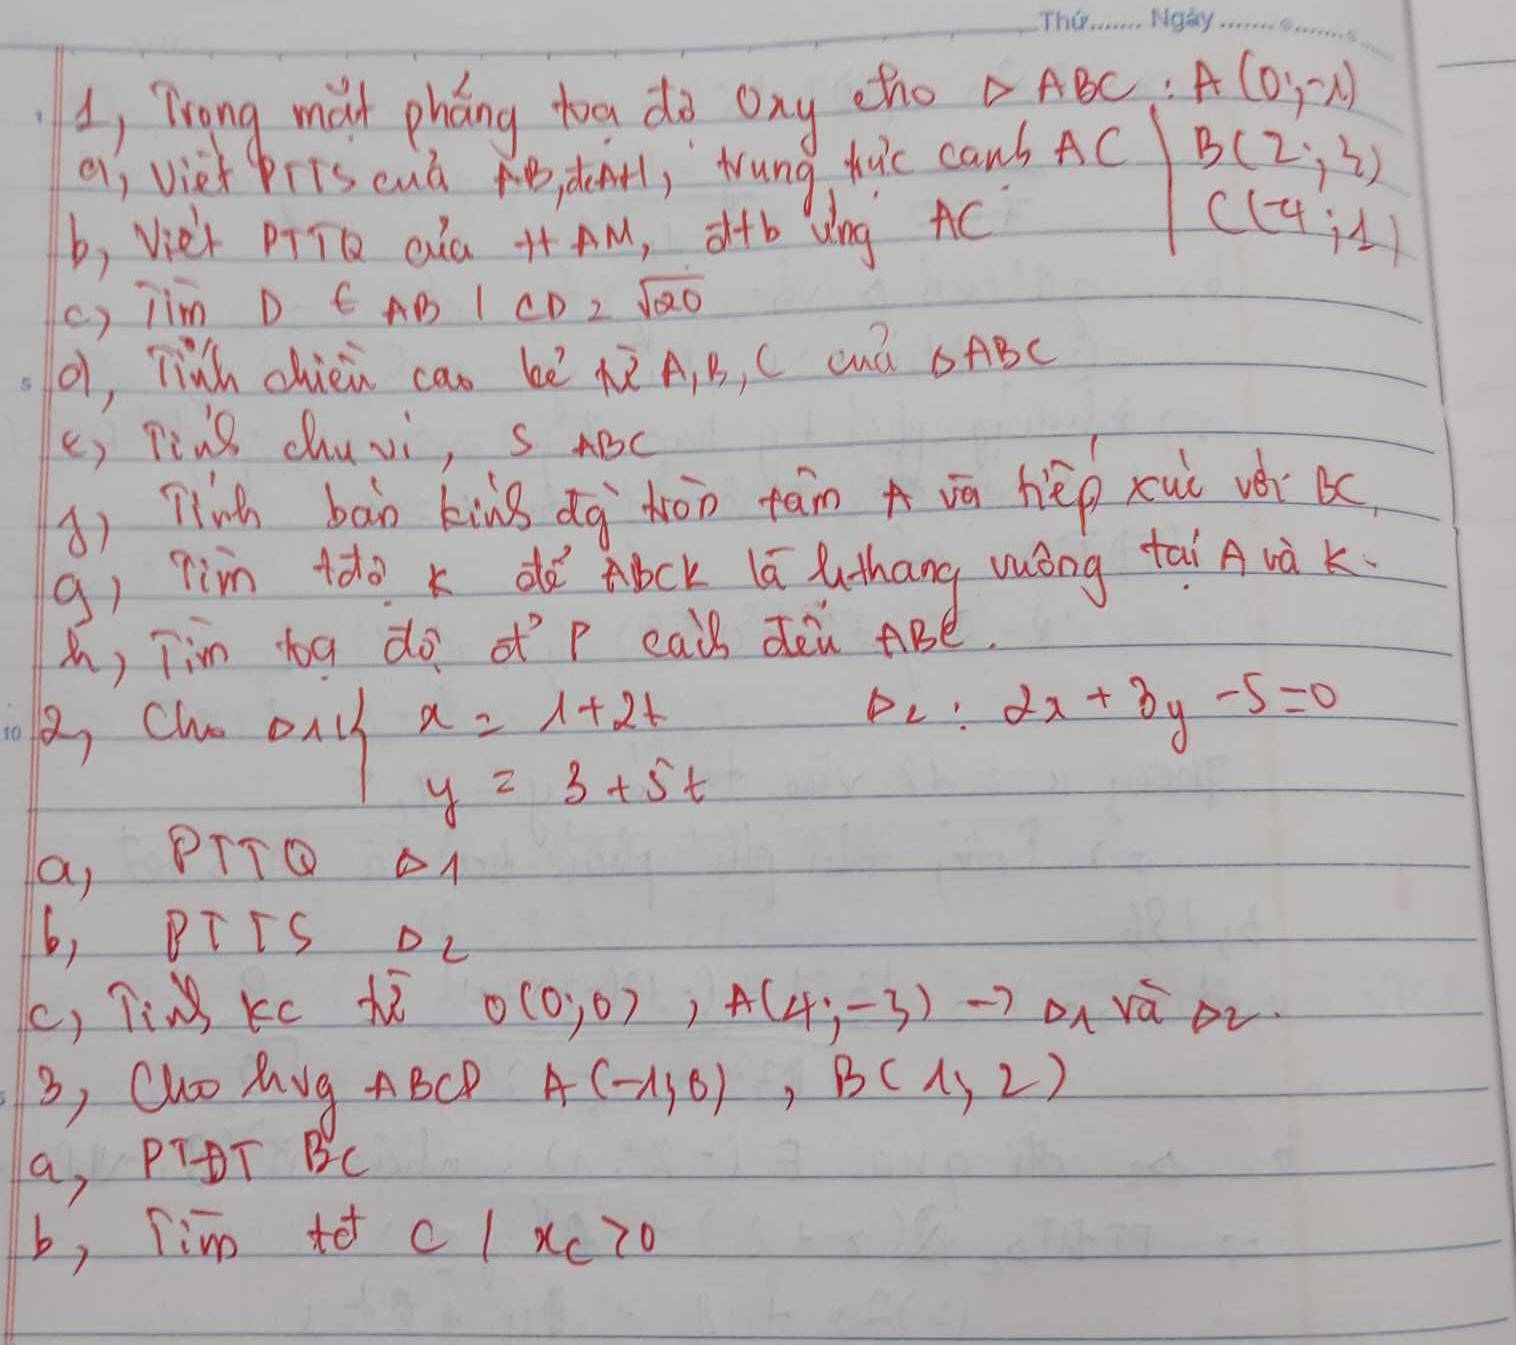 Thứ........ Ngày....................
1, Trong mặt phẳng toạ độ Oxy cho Δ ABC : A (0;-1)
a, Viết PTTS của AB, đcAH, trung trực cạnh AC | B(2; 3)
b, Viết PTTQ của tt AM, đtb ứng AC | C(-4;1)
c) Tìm D ∈ AB | CD = √20
d, Tính chiều cao kẻ từ A, B, C của ΔABC
e, Tính chu vi, S ABC
f) Tính bán kính đg tròn tâm A và tiếp xúc với BC,
g) Tìm tđộ K để ABCK là h.thang vuông tại A và K.
h, Tìm toạ độ đ' P cách đều ABC.
2, Cho Δ1 { x = 1+2t Δ2 : 2x + 3y -5=0
y = 3 + 5t
a, PTTQ Δ1
b, PTTS Δ2
c, Tính kc từ O(0;0) , A(4;-3) -> Δ1 và Δ2.
3, Cho hvg ABCD A(-1;0) , B(1; 2)
a, PTĐT BC
b, Tìm tđ C | xC >0